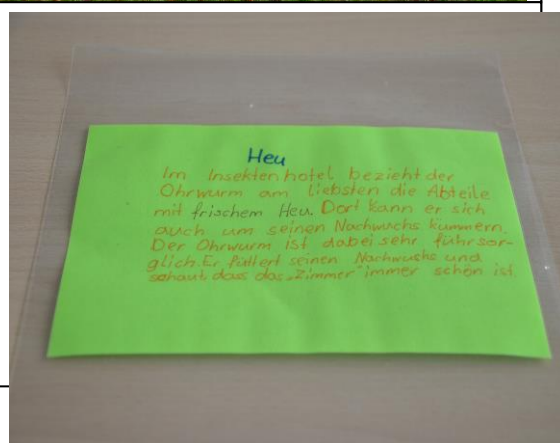 Heu
Im Insektenhotel bezieht der
Ohrwurm am liebsten die Abteile
mit frischem Heu. Dort kann er sich
auch um seinen Nachwuchs kümmern.
Der Ohrwurm ist dabei sehr führsor-
glich. Er füttert seinen Nachwuchs und
schaut dass das „Zimmer" immer schön ist.